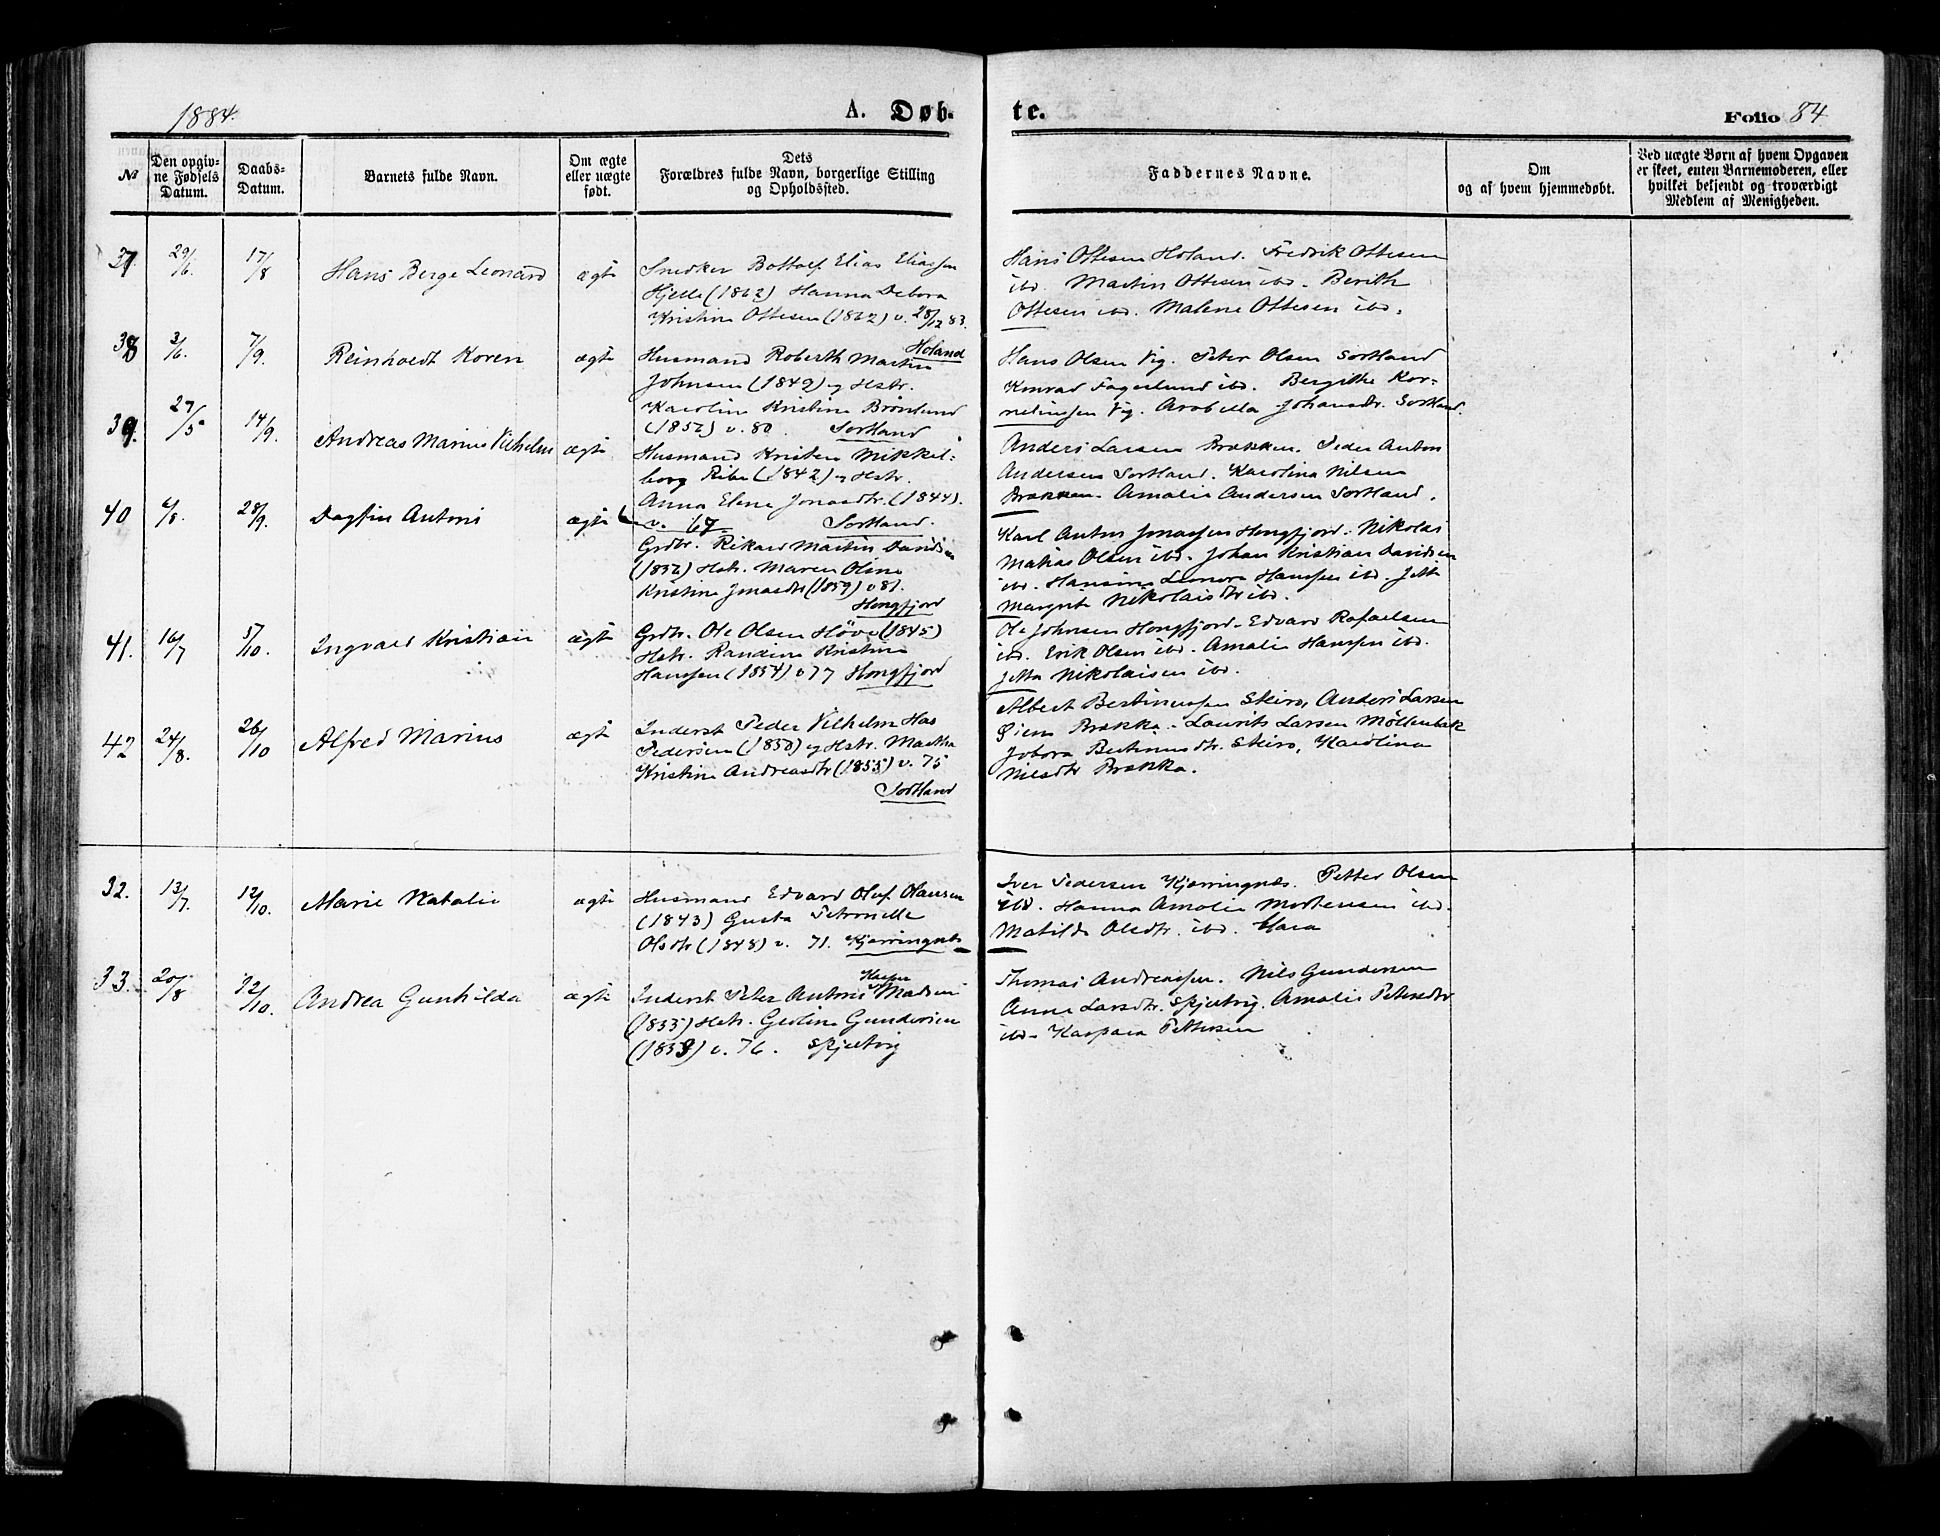 1884.
A. Døb-
te.
Folio 84
№
Den opgiv-
ne Fødsels
Datum.
Daabs-
Datum.
Barnets fulde Navn.
Om ægte
eller uægte
født.
Dets
Forældres fulde Navn, borgerlige Stilling
og Opholdssted.
Faddernes Navne.
Om
og af hvem hjemmedøbt.
Ved uægte Børn af hvem Opgaven
er skeet, enten Barnemoderen, eller
hvilket bekjendt og troværdigt
Medlem af Menigheden.
37
29/6.
17/8
Hans Berge Leonard
ægte
Snedker Bottolf Elias Eliassen
Hjelle (1862) Hanna Debora
Kristine Ottesen (1862) v. 28/12 83.
Holand
Hans Ottesen Holand. Fredrik Ottesen
ibd. Martin Ottesen ibd. Berith
Ottesen ibd. Malene Ottesen ibd.
38
3/6.
7/9.
Reinholdt Koren
ægte
Husmand Roberth Martin
Johnsen (1849) og Hstr.
Karoline Kristine Brönlund
(1852) v. 80. Sortland
Hans Olsen Vig. Peter Olsen Sortland
Konrad Fagerlund ibd. Bergithe Kor-
neliussen Vig. Arabella Johansdtr. Sortland.
39.
27/5
14/9.
Andreas Marius Vilhelm
ægte
Husmand Kristen Mikkel-
borg Ribe (1842) og Hstr.
Anna Elene Jonasdtr. (1844).
v. 67 Sortland.
Anders Larsen Brækken. Peder Anton
Andersen Sortland. Karolina Nilsen
Brækken. Amalie Andersen Sortland.
40
6/8.
28/9.
Dagfin Antoni
ægte
Grdbr. Rikard Martin Davidsen
(1852) Hstr. Maren Oline
Kristine Jonasdtr (1859) v 81.
Hongfjord
Karl Anton Jonassen Hongfjord. Nikolai
Matias Olsen ibd. Johan Kristian Davidsen
ibd. Hansine Leonora Hanssen ibd. Jetta
Margrete Nikolaisdtr ibd.
41.
16/7
5/10.
Ingvald Kristian
ægte
Grdbr. Ole Olsen Höve (1845)
Hstr. Randine Kristine
Hanssen (1854) v 77 Hongfjord
Ole Johnsen Hongfjord. Edvard Rafaelsen
ibd. Erik Olsen ibd. Amalie Hanssen ibd.
Jetta Nikolaisen ibd.
42
24/8.
26/10
Alfred Marius
ægte
Inderst Peder Vilhelm Has
Pedersen (1850) og Hstr. Martha
Kristine Andreasdtr (1855) v. 75
Sortland
Albert Bertinussen Skiro, Anders Larsen
Brække. Laurits Larsen Möllenbak
Bertinusdtr. Skiro, Karolina
Nilsdtr Brække.
32.
13/7.
12/10.
Marie Natalie
ægte
Husmand Edvard Oluf Olausen
(1843) Gusta Petronelle
Olsdtr (1848) v. 71. Kjerringnes
Iver Pedersen Kjerringnes. Petter Olsen
ibd. Hanna Amalie Mortensen ibd.
Matilde Olsdtr. ibd.
33.
20/8
12/10.
Andrea Gunhilda
ægte
Inderst Peter Antoni Kasper Madsen
(1855) Hstr. Geoline Gundersen
(1853) v. 76. Skjelvog
Thomas Andreassen. Nils Gundersen
Anne Larsdtr. Skjelvig. Amalie Petersdtr
ibd. Kaspara Pettersen